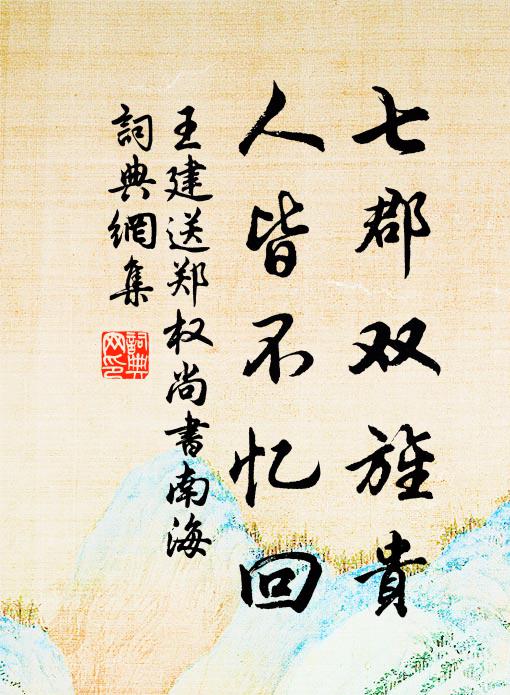 七郡双旌贵
人皆不忆回
王建送郑权尚書南海
詞典網集
詞典網印